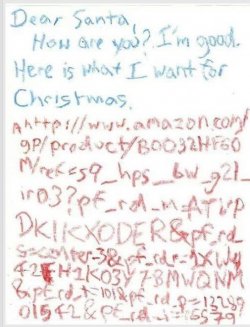 Dear Santa,
How are you? I'm good.
Here is what I want for
Christmas.
http://www.amazon.com/
gp/product/B0032HF60
M/ref=s9_hps_bw_g21_
ir03?pf_rd_m=ATVP
DKIKX0DER&pf_rd_
s=center-3&pf_rd_r=1XWy
42EH1K03Y78MWQNM
&pf_rd_t=101&pf_rd_p=12289
01542&pf_rd_i=16579